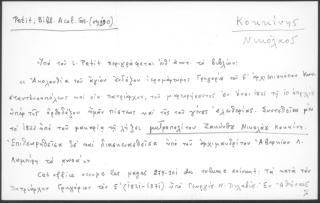 Petit, Bibl. Acol.
Κοκκίνης
Νικόλαος
Υπό του L. Petit περιγράφεται υπ' αριθ. το βιβλίον:
"Ακολουθία του αγίου ενδόξου ιερομάρτυρος Γρηγορίου του Ε΄ αρχιεπισκόπου Κων
σταντινουπόλεως και οικ. πατριάρχου, του μαρτυρήσαντος εν έτει 1821 τη 10 Απριλίου
υπέρ της ορθοδόξου ημών πίστεως και της του γένους ελευθερίας. Συντεθείσα μεν
τω υπό του μακαρίτου τη λήξει μητροπολίτου Ζακύνθου Νικολάου Κοκκίνη.
Επιθεωρηθείσα δε και διασκευασθείσα υπό του αρχιμανδρίτου
Λαμπίρη
Cet office occupe les pages du volume suivant: Τα κατά τον
πατριάρχην Γρηγόριον τον Ε΄ υπό Γεωργίου Εν Αθήναις